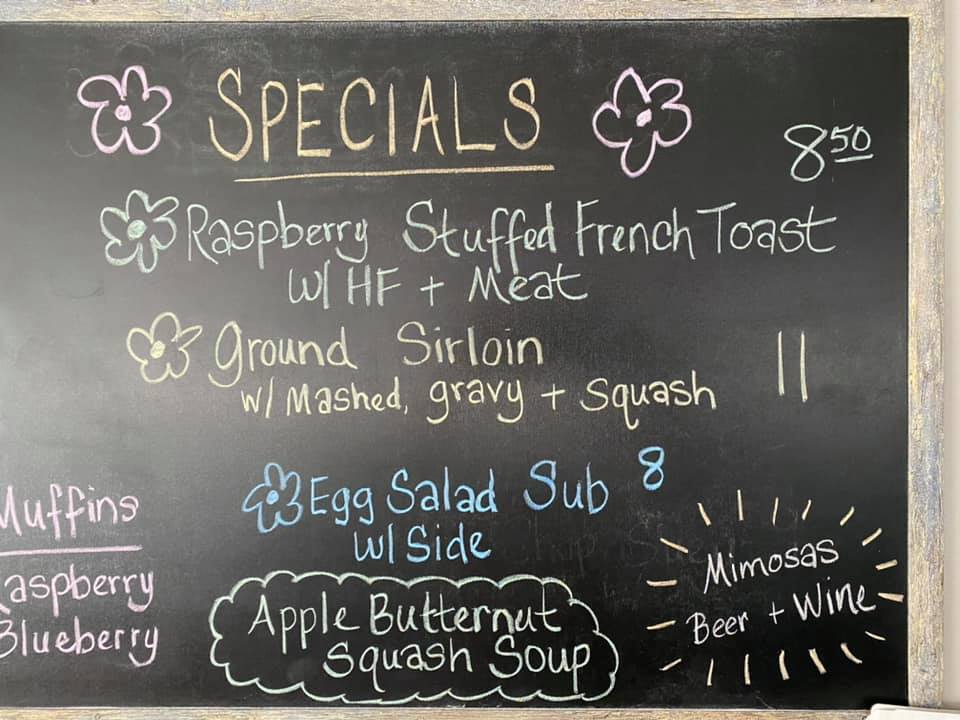 SPECIALS
8 50
Raspberry Stuffed French Toast
w/ HF + Meat
Ground Sirloin 11
w/ Mashed, gravy + Squash
Egg Salad Sub 8
w/ Side
Apple Butternut
Squash Soup
Muffins
Raspberry
Blueberry
Mimosas
Beer + Wine